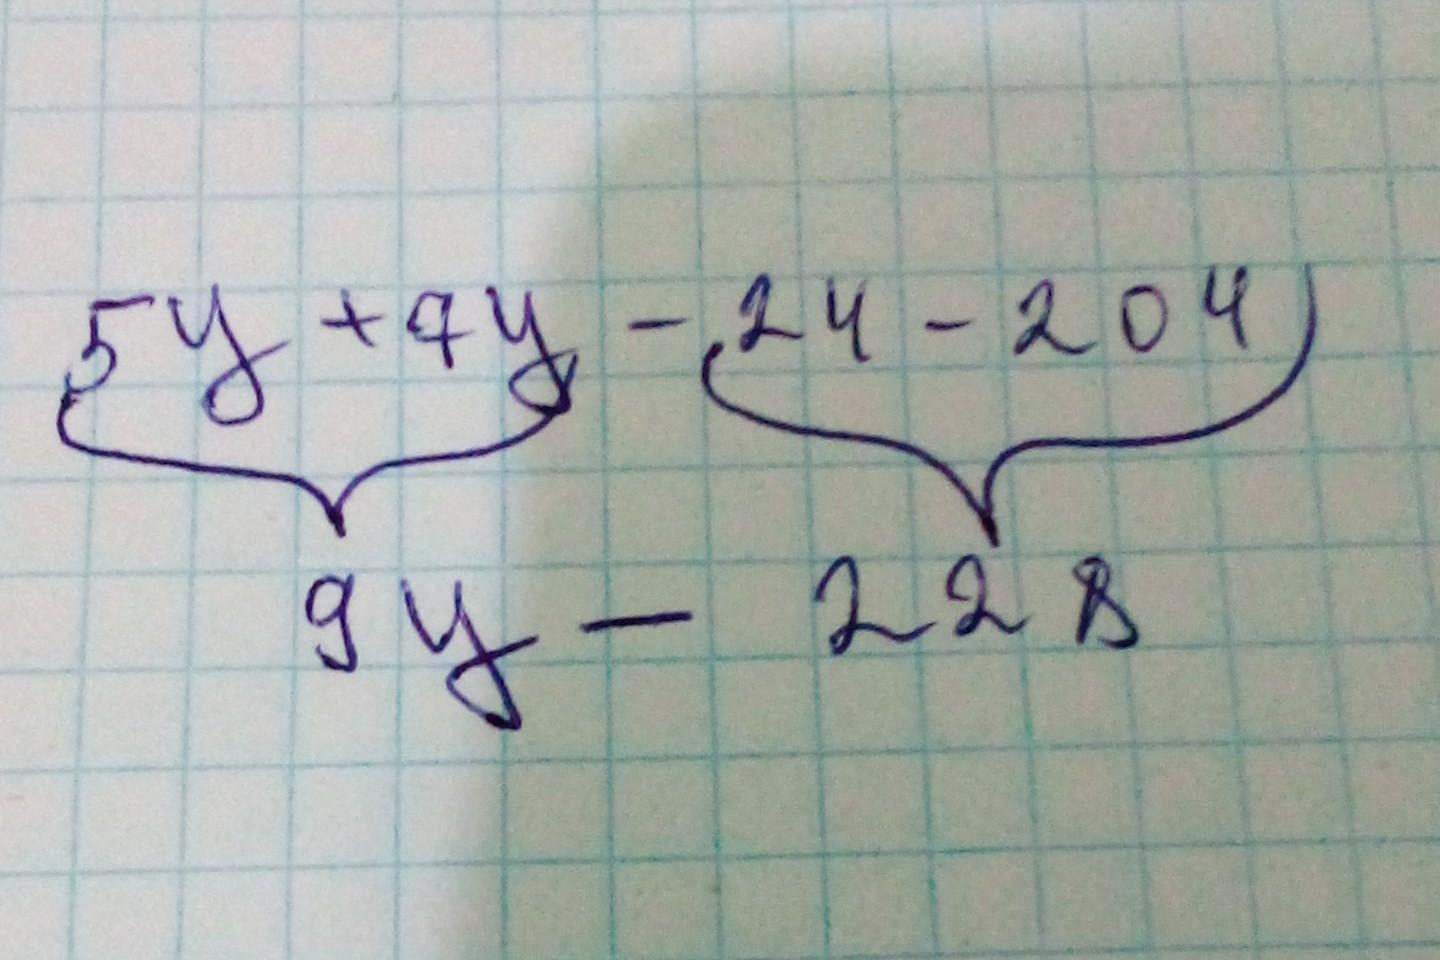 5y + 4y - 24 - 204
9y - 228